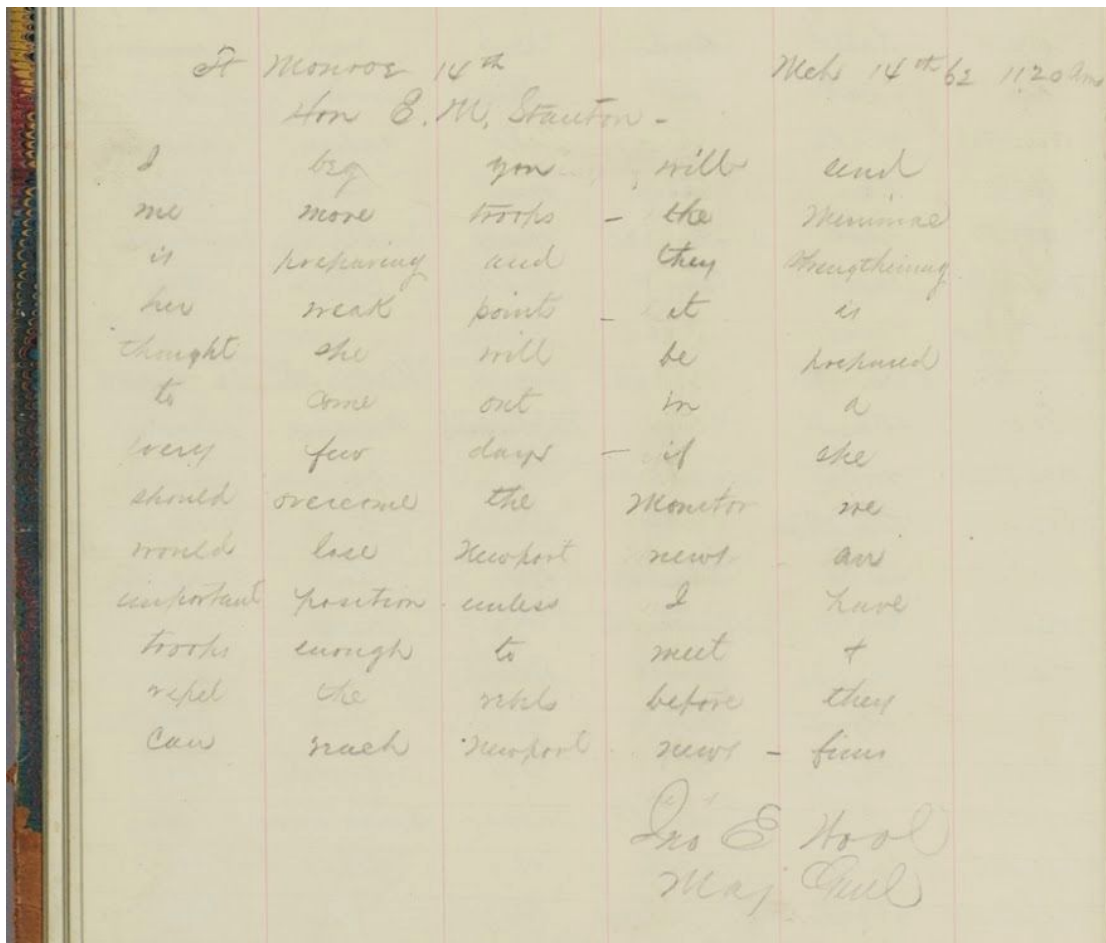 Ft Monroe 14th Mch 14th 62 11.20 am
Hon E. M. Stanton -
I beg you will send
me more troops - the Merrimac
is preparing and they strengthening
her weak points - it is
thought she will be prepared
to come out in a
very few days - if she
should overcome the Monitor we
would lose Newport news an
important position unless I have
troops enough to meet +
repel the rebels before they
can reach Newport news - finis
Jno E Wool
Maj Genl